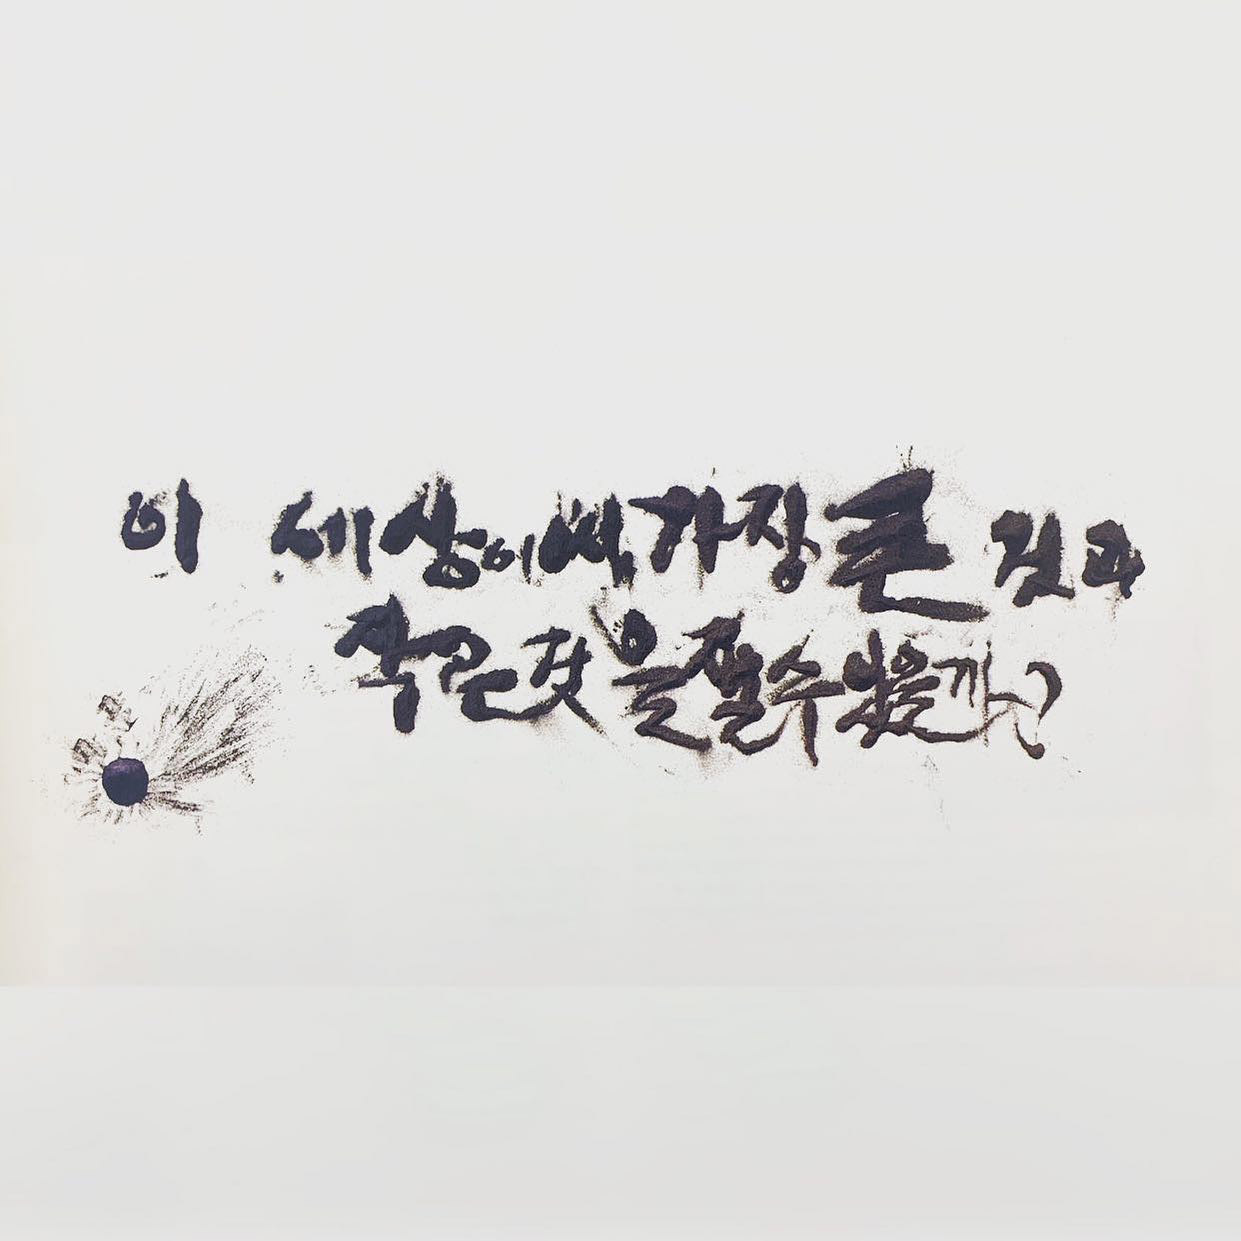 이 세상에서 가장 큰 것과
작은 것을 잴 수 있을까?